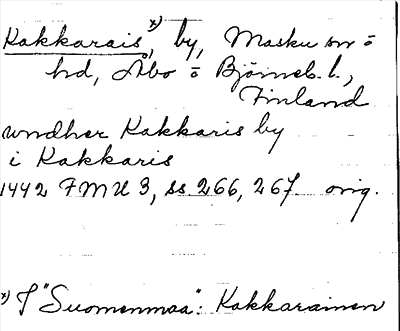 Kakkarais x), by, Masku sn o
hd, Åbo o Björneb. l.,
Finland
undher Kakkaris by
i Kakkaris
1442 FMU 3, ss 266, 267 orig.
x) I "Suomenmaa": Kakkarainen